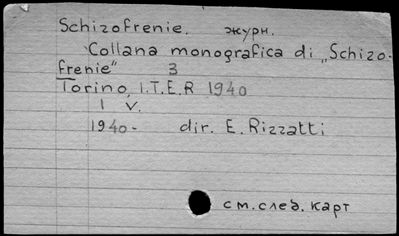 Schizofrenie. журн.
Collana monografica di „Schizo-
frenie" 3
Torino, I.T.E.R 1940
1 v.
1940- dir. E. Rizzatti
см. след. карт